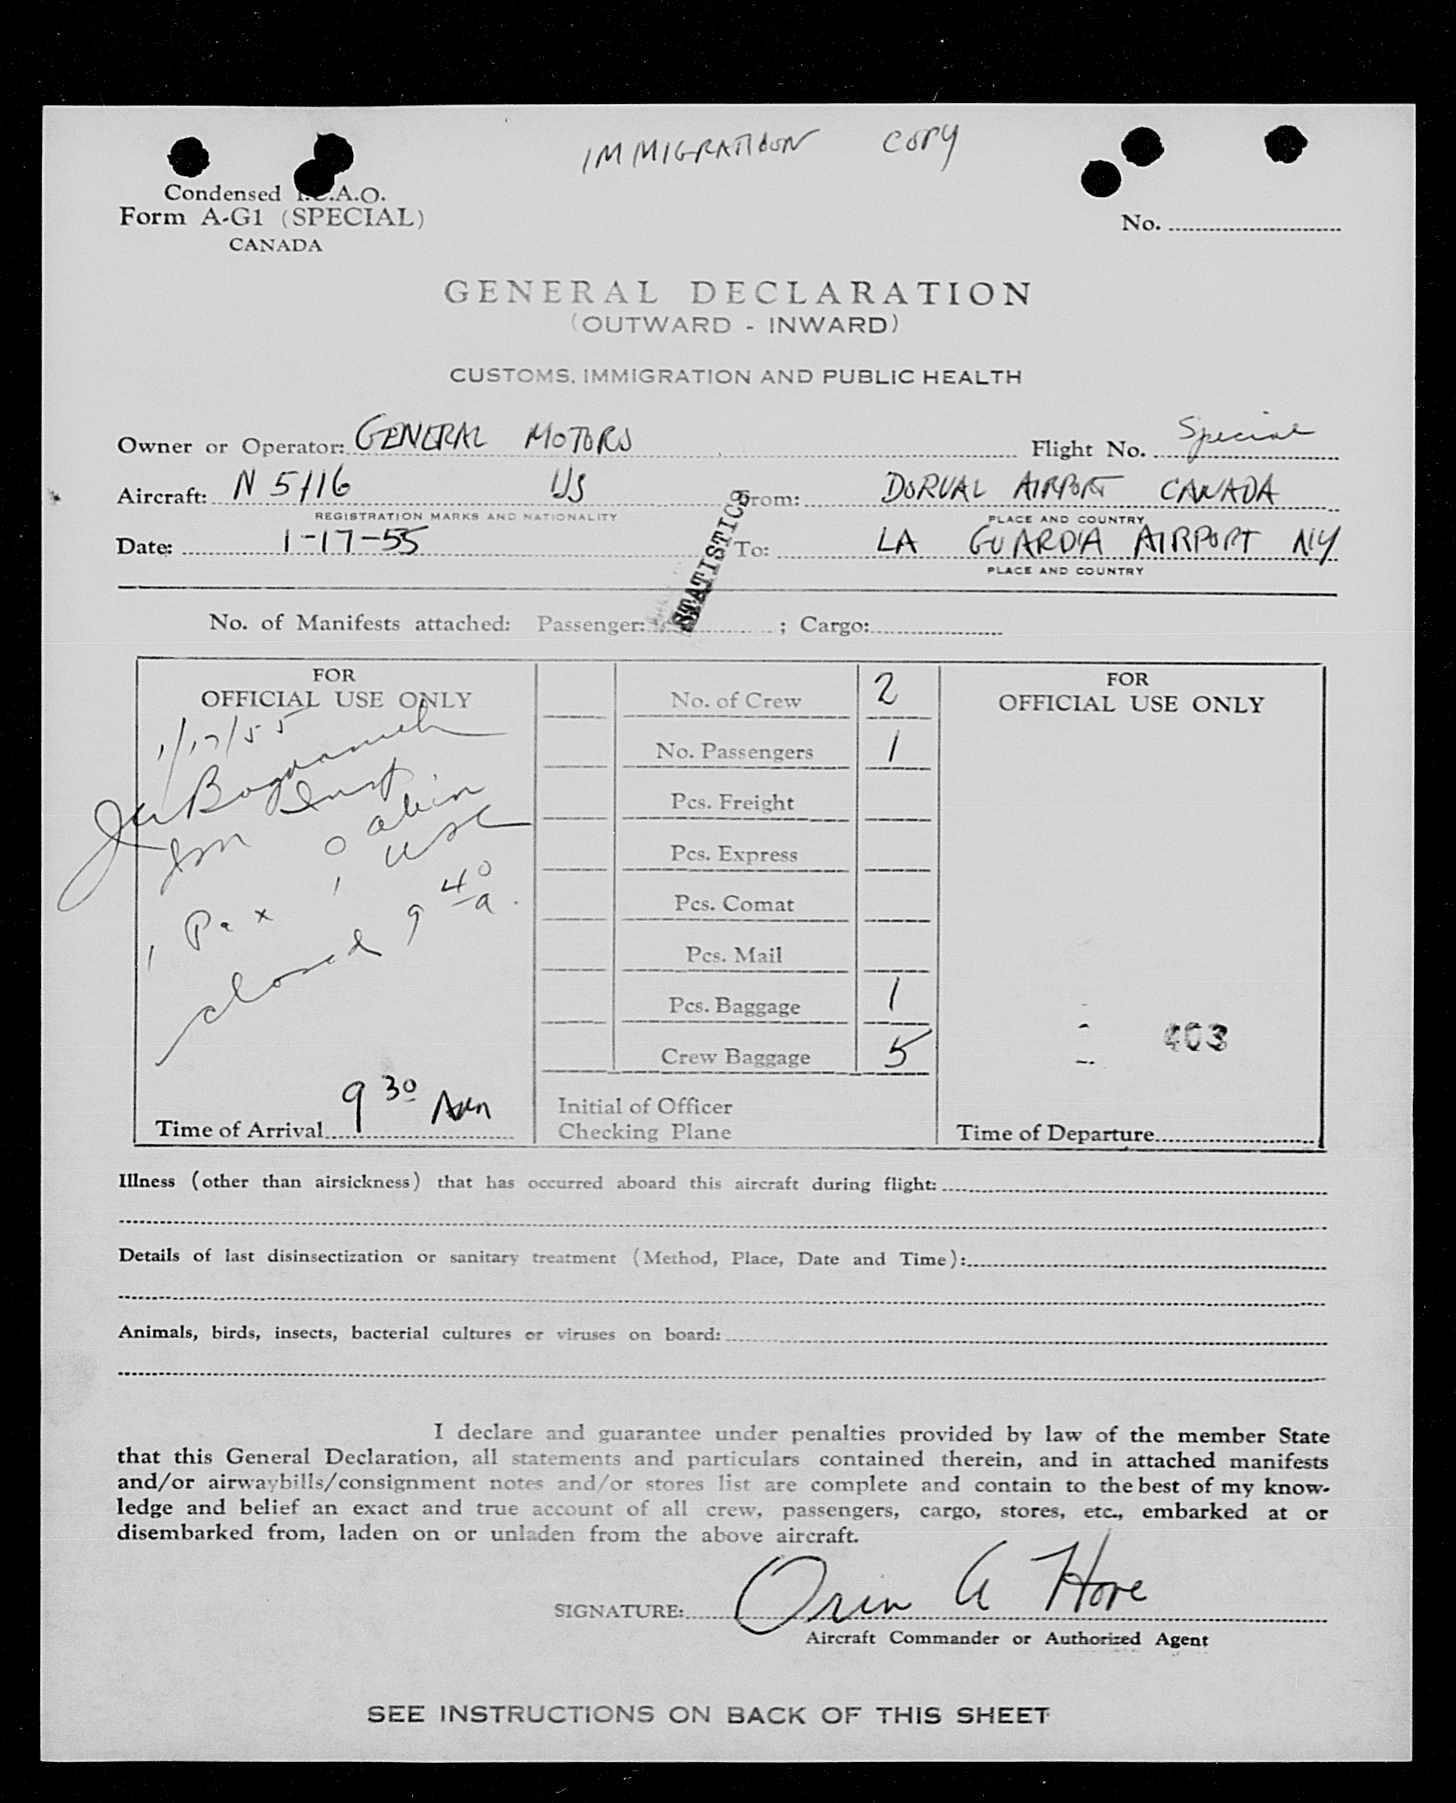 IMMIGRATION COPY
Condensed I.C.A.O.
Form A-G1 (SPECIAL)
CANADA
No.
GENERAL DECLARATION
(OUTWARD - INWARD)
CUSTOMS, IMMIGRATION AND PUBLIC HEALTH
Owner or Operator: GENERAL MOTORS Flight No. Special
Aircraft: N 5116 US From: DORVAL AIRPORT CANADA
REGISTRATION MARKS AND NATIONALITY PLACE AND COUNTRY
Date: 1-17-55 To: LA GUARDIA AIRPORT NY
PLACE AND COUNTRY
STATISTICS
No. of Manifests attached: Passenger: ; Cargo:
FOR
OFFICIAL USE ONLY
1/17/55
Bogdanich
Imm Insp
1 Pax 1 cabin use
closed 9 40 a.
Time of Arrival 9 30 Am
No. of Crew 2
No. Passengers 1
Pcs. Freight
Pcs. Express
Pcs. Comat
Pcs. Mail
Pcs. Baggage 1
Crew Baggage 5
Initial of Officer
Checking Plane
FOR
OFFICIAL USE ONLY
403
Time of Departure
Illness (other than airsickness) that has occurred aboard this aircraft during flight:
Details of last disinsectization or sanitary treatment (Method, Place, Date and Time):
Animals, birds, insects, bacterial cultures or viruses on board:
I declare and guarantee under penalties provided by law of the member State
that this General Declaration, all statements and particulars contained therein, and in attached manifests
and/or airwaybills/consignment notes and/or stores list are complete and contain to the best of my know-
ledge and belief an exact and true account of all crew, passengers, cargo, stores, etc., embarked at or
disembarked from, laden on or unladen from the above aircraft.
SIGNATURE: Orin A Hore
Aircraft Commander or Authorized Agent
SEE INSTRUCTIONS ON BACK OF THIS SHEET